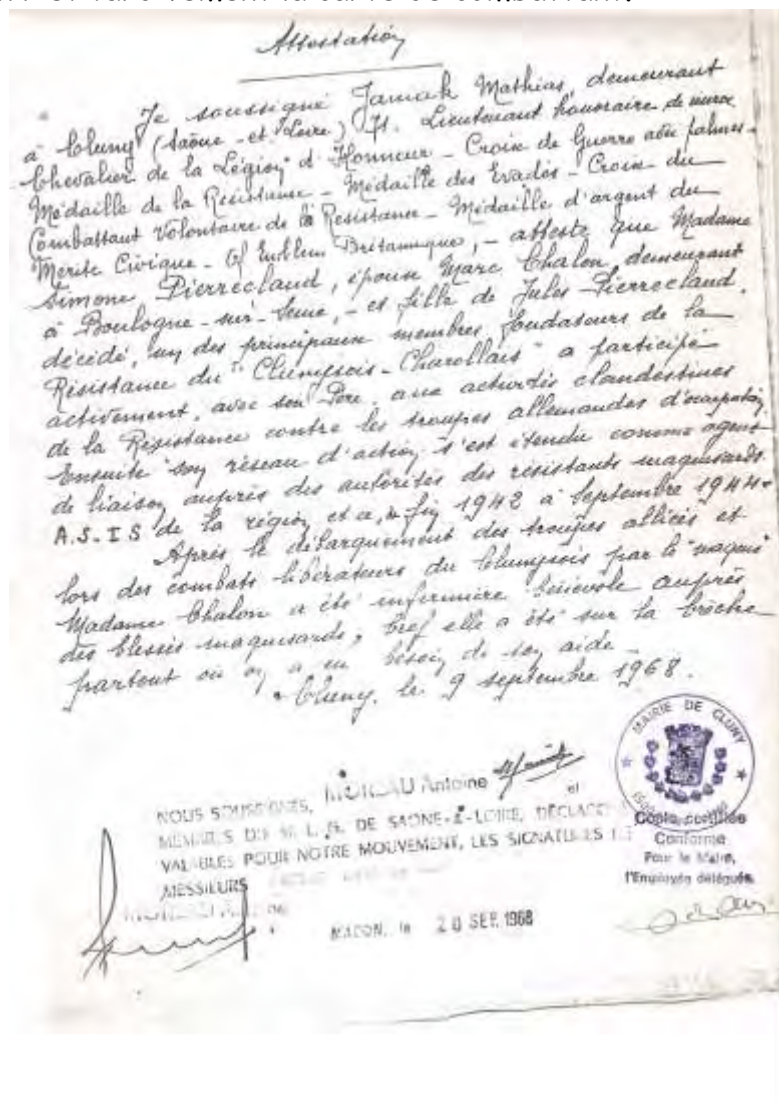 Attestation
Je soussigné Jamak Mathias, demeurant
à Cluny (Saône-et-Loire) Lieutenant honoraire de
Chevalier de la Légion d'Honneur - Croix de Guerre avec palmes -
Médaille de la Résistance - Médaille des Evadés - Croix du
Combattant Volontaire de la Résistance - Médaille d'argent du
Mérite Civique - Britannique, - atteste que Madame
Simone Pierreclaud, épouse Marc Chalon, demeurant
à Boulogne-sur-Seine, - et fille de Jules Pierreclaud,
décédé, un des principaux membres fondateurs de la
Résistance du "Clunysois-Charollais" a participé
activement, avec son Père, aux activités clandestines
de la Résistance contre les troupes allemandes d'occupation
Ensuite son réseau d'action s'est étendu comme agent
de liaison auprès des autorités des résistants maquisards
A.S-I S de la région et a, fin 1942 à Septembre 1944.
Après le débarquement des troupes alliées et
lors des combats libérateurs du Clunysois par le "maquis"
Madame Chalon a été infirmière bénévole auprès
des blessés maquisards, bref elle a été sur la brèche
partout où on a eu besoin de son aide.
Cluny, le 9 septembre 1968.
MAIRIE DE CLUNY
NOUS SOUSSIGNES, MOREAU Antoine et
MEMBRES DU M. L. N. DE SAONE-&-LOIRE,
VALABLES POUR NOTRE MOUVEMENT, LES SIGNATURES
MESSIEURS
Copie certifiée
Conforme
Pour le Maire,
l'Employée déléguée,
MACON, le 20 SEP. 1968